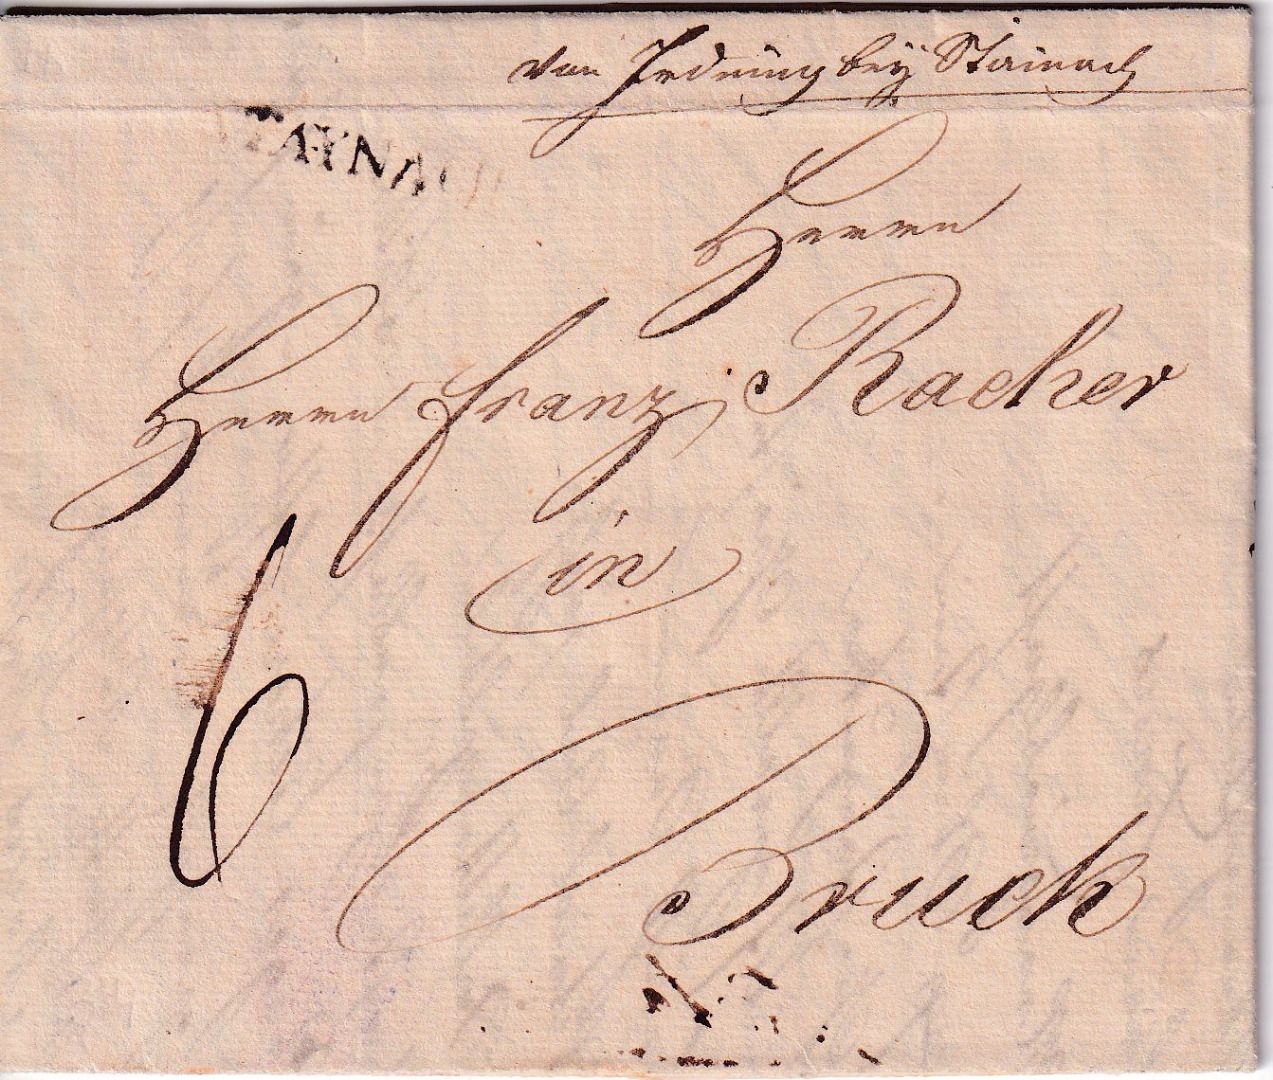 von Irdning bey Stainach
STAYNACH
Herrn
Herrn Franz Racher
in
6
Bruck